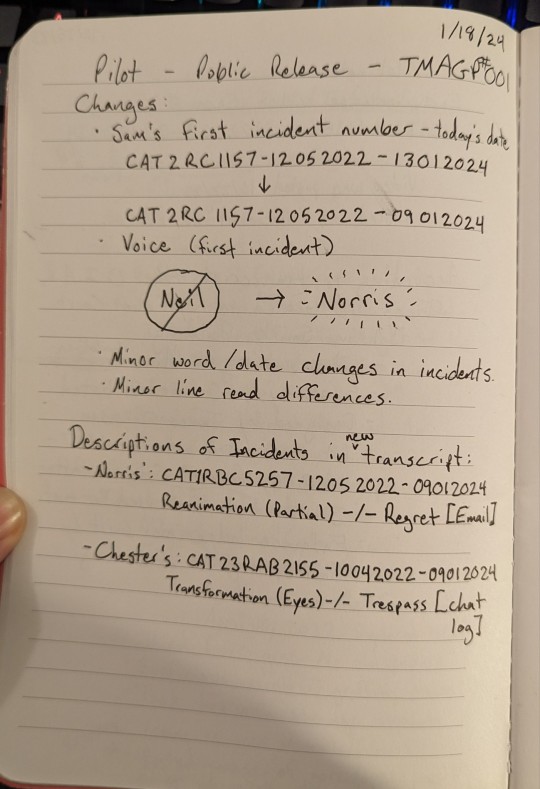 1/18/24
Pilot - Public Release - TMAGP#001
Changes:
· Sam's first incident number - today's date
CAT2RC1157-12052022-13012024
↓
CAT2RC1157-12052022-09012024
· Voice (first incident)
Neil → Norris
· Minor word/date changes in incidents.
· Minor line read differences.
Descriptions of Incidents in new transcript:
- Norris': CAT1RBC5257-12052022-09012024
Reanimation (Partial) -/- Regret [Email]
- Chester's: CAT23RAB2155-10042022-09012024
Transformation (Eyes) -/- Trespass [chat
log]